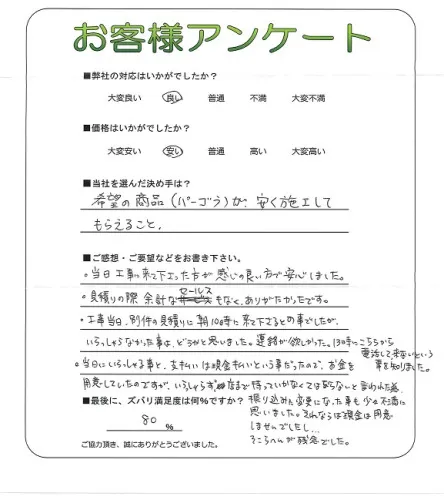 お客様アンケート
■弊社の対応はいかがでしたか？
大変良い 良い 普通 不満 大変不満
■価格はいかがでしたか？
大変安い 安い 普通 高い 大変高い
■当社を選んだ決め手は？
希望の商品（パーゴラ）が、安く施工して
もらえること。
■ご感想・ご要望などをお書き下さい。
・当日工事に来て下さった方が感じの良い方で安心しました。
・見積りの際余計なセールスもなく、ありがたかったです。
・工事当日、別件の見積りに朝10時に来て下さるとの事でしたが、
いらっしゃらなかった事は、どうかと思いました。連絡が欲しかった。（13時にこちらから
電話して来ないという
事を知りました。
・当日にいらっしゃる事と、支払いは現金払いという事だったので、お金を
用意していたのですが、いらっしゃらず店まで持っていかなくてはならないと言われた為、
■最後に、ズバリ満足度は何％ですか？
振り込みに変更になった事も少々不満に
思いました。それならば現金は用意
しませんでしたし…
そこらへんが残念でした。
80 %
ご協力頂き、誠にありがとうございました。